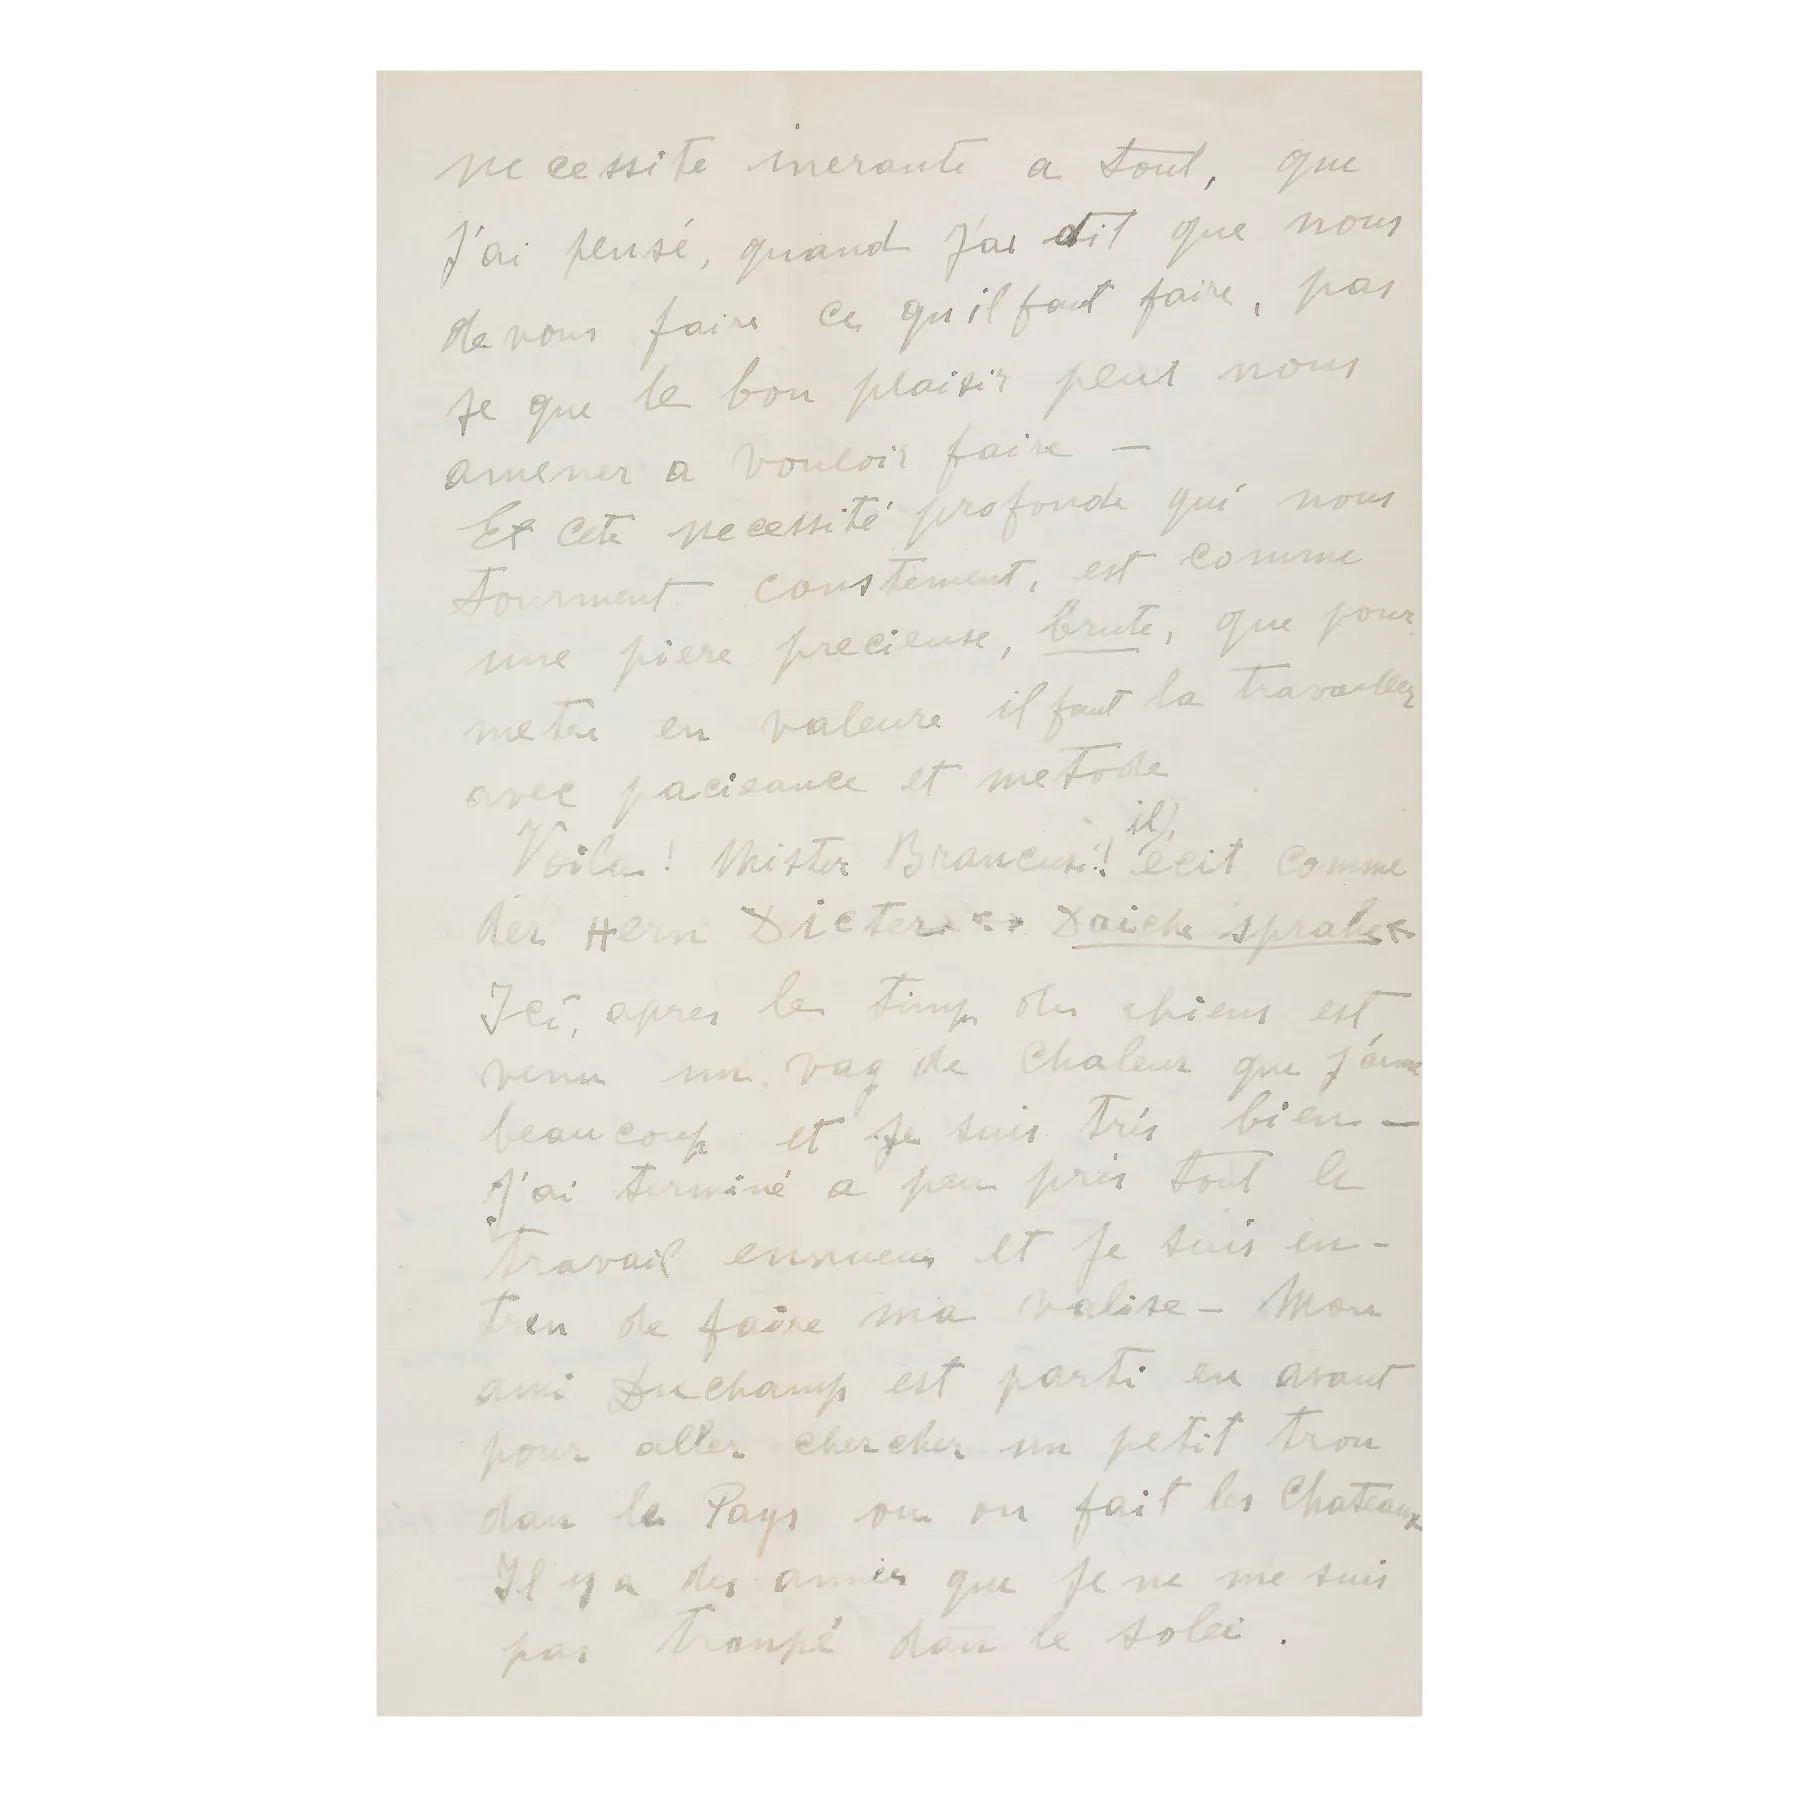 necessite inerante a tout, que
J'ai pensé, quand J'ai dit que nous
devons faire ce qu'il faut faire, pas
se que le bon plaisir peut nous
amener a vouloir faire —
Et cete necessité profonde qui nous
tourment constement, est comme
une piere precieuse, brute, que pour
metre en valeure il faut la travailler
avec pacieance et metode
Voila! Mister Brancusi! il écit comme
der Hern Dicter Daiche sprahe
Ici, apres le timp des chiens est
venu un vag de chaleur que J'aime
beaucoup et Je suis trés bien —
J'ai terminé a peu prés tout le
travail ennueux et Je suis en-
tren de faire ma valise — Mon
ami Duchamp est parti en avant
pour aller chercher un petit trou
dan le Pays ou on fait les Chateaux
Il y a des annés que Je ne me suis
pas trempé dan le solei.